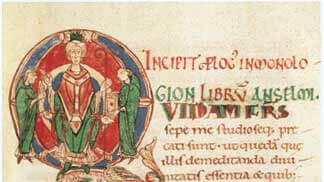 INCIPIT PLOG̅ IN MONOLO
GION LIBRŪ ANSELMI.
VIDAM FRS
sepe me studioseq; pre
cati sunt. ut quedā que
illis de meditanda diui
nitatis essentia & quib;